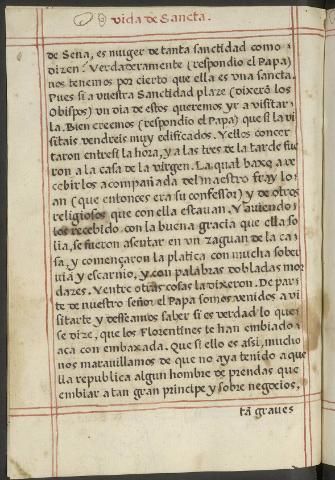 vida de Sancta.
de Sena, es muger de tanta sanctidad como
dizen? Verdaderamente (respondio el Papa)
nos tenemos por cierto que ella es vna sancta.
Pues si a vuestra Sanctidad plaze (dixerõ los
Obispos) vn dia de estos queremos yr a visitar
la. Bien creemos (respondio el Papa) que si la vi
sitais vendreis muy edificados. Y ellos concer
taron entresi la hora, y a las tres de la tarde fue
ron a la casa de la virgen. La qual baxo a re
cebirlos acompañada del maestro fray Io
an (que entonces era su confessor) y de otros
religiosos que con ella estauan. Y auiendo
los recebido con la buena gracia que ella so
lia, se fueron asentar en vn zaguan de la ca
sa, y començaron la platica con mucha sober
uia y escarnio, y con palabras dobladas mor
dazes. Y entre otras cosas la dixeron. De par
te de nuestro señor el Papa somos venidos a vi
sitarte y desseamos saber si es verdad lo que
se dize, que los Florentines te han embiado a
aca con embaxada. Que si ello es assi, mucho
nos marauillamos de que no aya tenido aque
lla republica algun hombre de prendas que
embiar a tan gran principe y sobre negocios,
tã graues